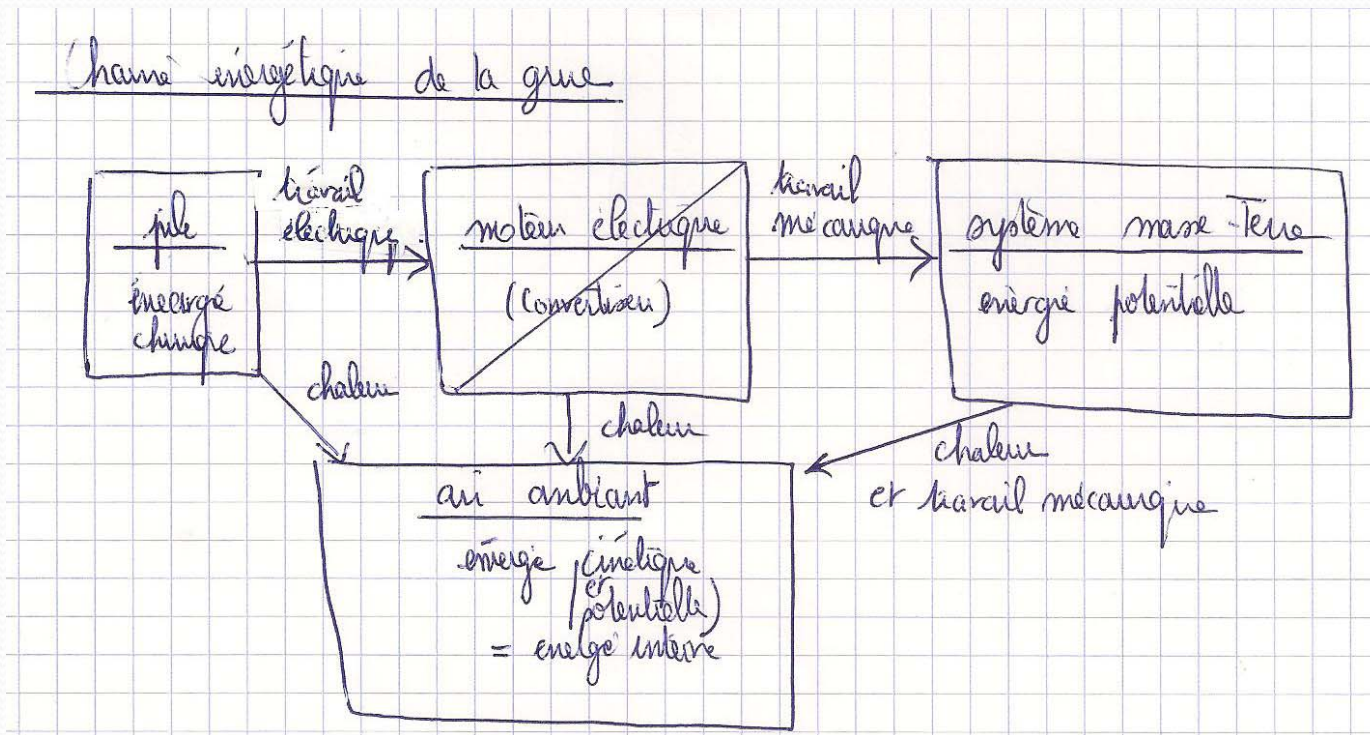 Chaîne énergétique de la grue
pile
énergie
chimique
travail
électrique
moteur électrique
(convertisseur)
travail
mécanique
système masse-Terre
énergie potentielle
chaleur
chaleur
chaleur
et travail mécanique
air ambiant
énergie cinétique
et
potentielle)
= énergie interne